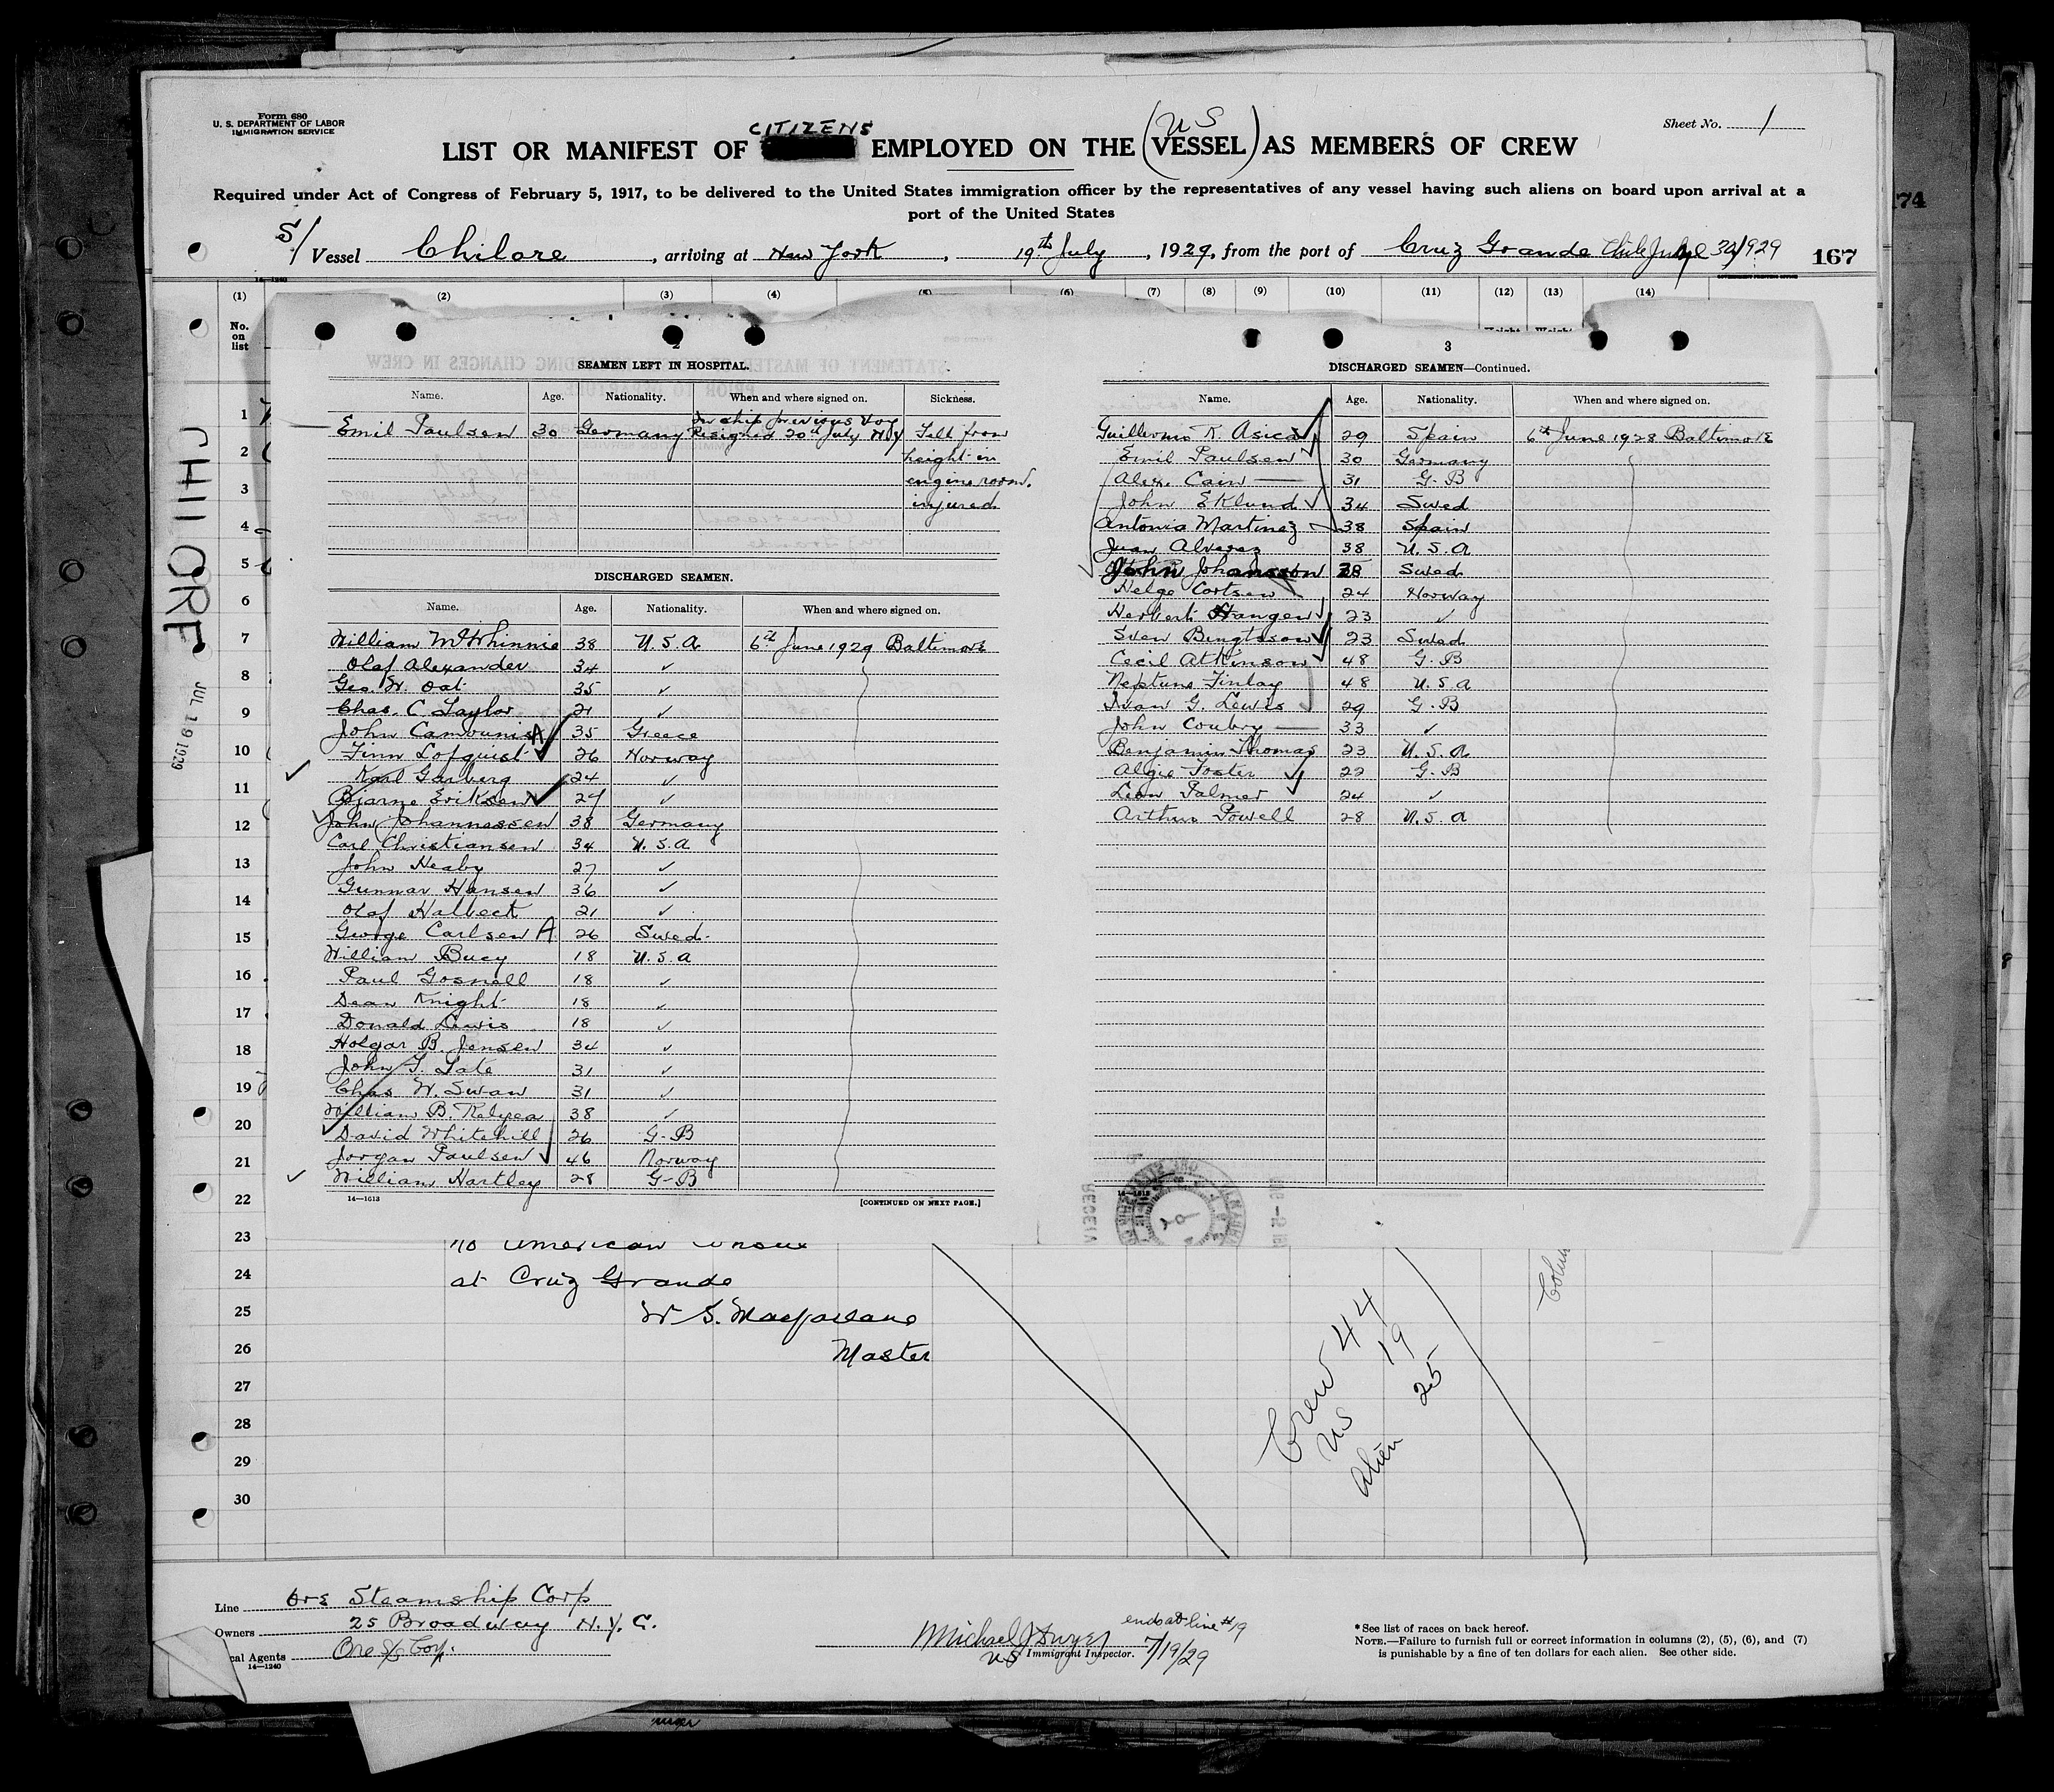 Form 680
U. S. DEPARTMENT OF LABOR
IMMIGRATION SERVICE
Sheet No. 1
CITIZENS
US
LIST OR MANIFEST OF EMPLOYED ON THE (VESSEL) AS MEMBERS OF CREW
Required under Act of Congress of February 5, 1917, to be delivered to the United States immigration officer by the representatives of any vessel having such aliens on board upon arrival at a
port of the United States
S/ Vessel Chilore, arriving at New York, 19th July, 1929, from the port of Cruz Grande Chile 1929
167
174
(1) (2) (3) (4) (5) (6) (7) (8) (9) (10) (11) (12) (13) (14)
No. on list
CHILORE JUL 19 1929
2
SEAMEN LEFT IN HOSPITAL.
Name. Age. Nationality. When and where signed on. Sickness.
In ship previous Voy
Emil Paulsen 30 Germany Resigned 20th July N.Y Fell from
height in
engine room.
injured
DISCHARGED SEAMEN.
Name. Age. Nationality. When and where signed on.
William McWhinnie 38 U.S.A 6th June 1929 Baltimore
Olaf Alexander 34 ✓
Geo. W. Oat 35 ✓
Chas. C Taylor 21 ✓
John Camounis A 35 Greece
Finn Lofquist 26 Norway
Karl Garberg 24 ✓
Bjarne Eriksen 24 ✓
John Johannessen 38 Germany
Carl Christiansen 34 U.S.A
John Heaby 27 ✓
Gunnar Hansen 36 ✓
Olaf Halbeck 21 ✓
George Carlsen A 26 Swed.
William Bucy 18 U.S.A
Paul Gosnell 18 ✓
Dean Knight 18 ✓
Donald Lewis 18 ✓
Holgar B. Jensen 34 ✓
John T. Tate 31 ✓
Chas W. Swan 31 ✓
William B. Relyea 38 ✓
David Whitehill 26 G-B
Jorgan Paulsen 46 Norway
William Hartley 28 G-B
14—1613
[CONTINUED ON NEXT PAGE.]
3
DISCHARGED SEAMEN—Continued.
Name. Age. Nationality. When and where signed on.
Guillermo R. Asica 29 Spain 6th June 1928 Baltimore
Emil Paulsen 30 Germany
Alex. Cain 31 G-B
John Eklund 34 Swed
Antonia Martinez 38 Spain
Juan Alvarez 38 U.S.A
John Johansson 28 Swed
Helge Cortsen 24 Norway
Herbert Hangen 23 ✓
Sven Bengtsson 23 Swed
Cecil Atkinson 48 G-B
Neptune Finlay 48 U.S.A
Ivan G. Lewis 29 G-B
John Coubry 33 ✓
Benjamin Thomas 23 U.S.A
Algie Foster 22 G-B
Leon Palmer 24 ✓
Arthur Powell 28 U.S.A
1
2
3
4
5
6
7
8
9
10
11
12
13
14
15
16
17
18
19
20
21
22
23
24
25
26
27
28
29
30
no American Consul
at Cruz Grande
W S. Macfarlane
Master
Crew 44
US 19
alien 25
Line Ore Steamship Corp
Owners 25 Broadway N.Y.C.
cal Agents Ore S/S Corp.
14—1240
ends at line #19
Michael J Dwyer 7/19/29
US Immigrant Inspector.
*See list of races on back hereof.
NOTE.—Failure to furnish full or correct information in columns (2), (5), (6), and (7)
is punishable by a fine of ten dollars for each alien. See other side.